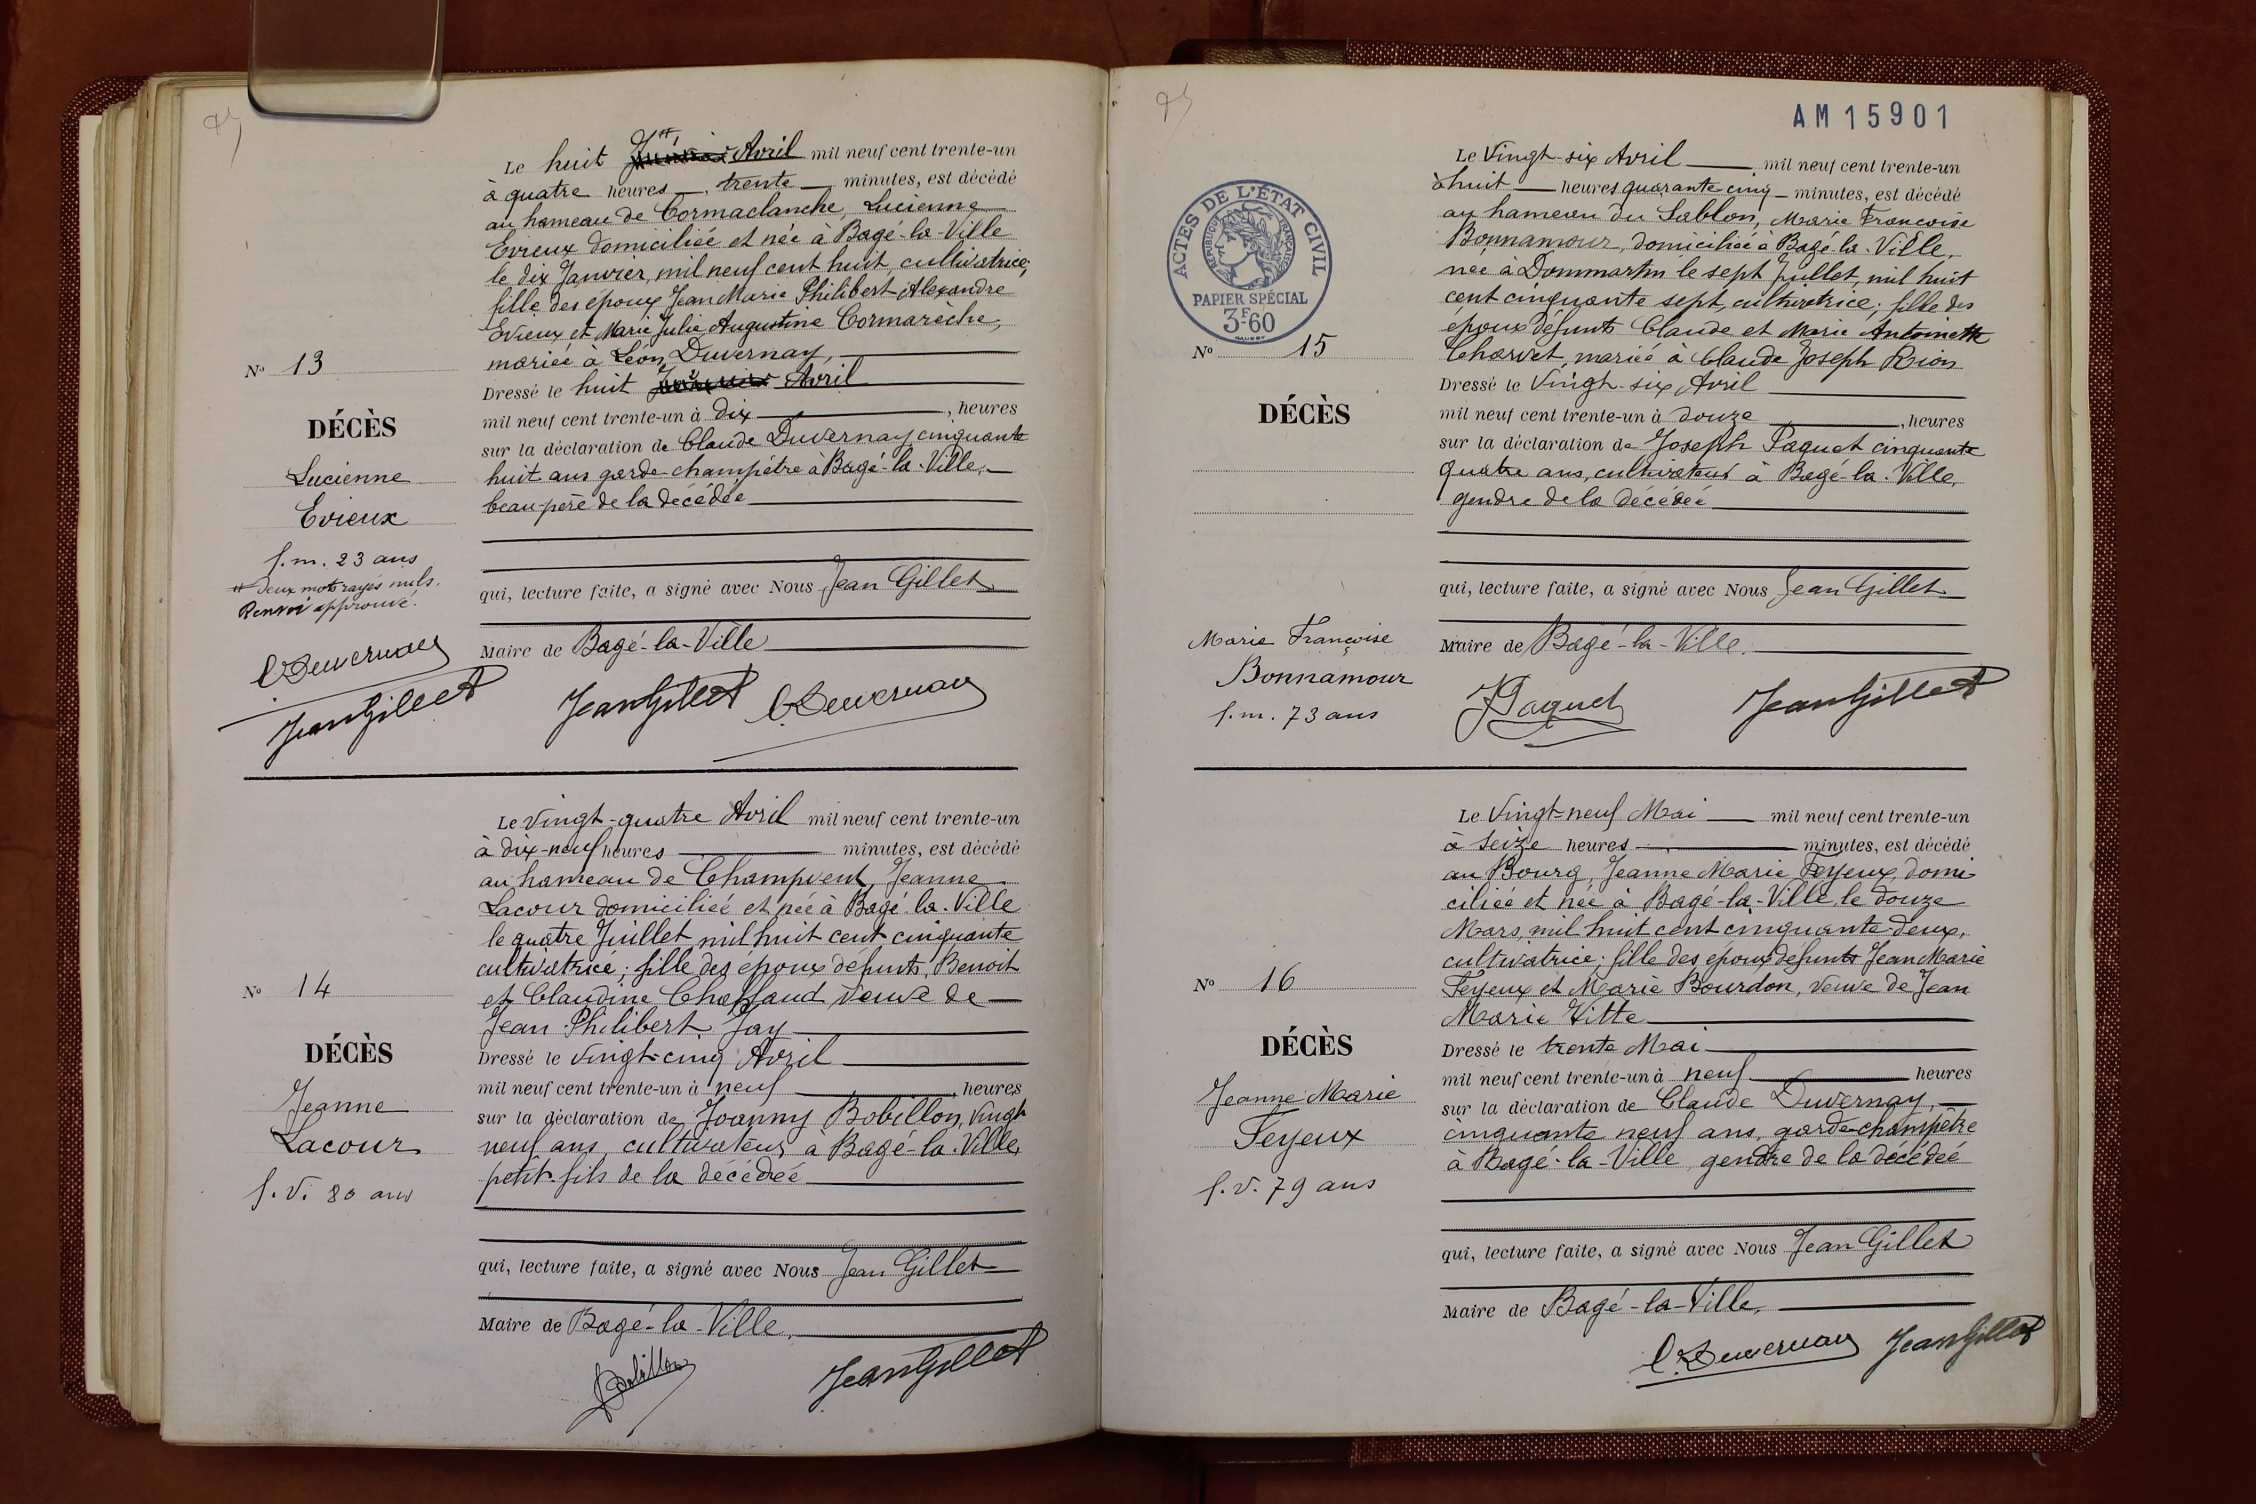 Le huit Avril mil neuf cent trente-un
à quatre heures trente minutes, est décédé
au hameau de Cormaclanche, Lucienne
Evieux domiciliée et née à Bagé-la-Ville
le dix Janvier, mil neuf cent huit, cultivatrice,
fille des époux Jean Marie Philibert Alexandre
Evieux et Marie Julie Augustine Cormarèche,
mariée à Léon Duvernay,
Dressé le huit Avril
mil neuf cent trente-un à dix, heures
sur la déclaration de Claude Duvernay cinquante
huit ans garde-champêtre à Bagé-la-Ville,
beau-père de la décédée
qui, lecture faite, a signé avec Nous Jean Gillet
Maire de Bagé-la-Ville
JeanGillet C.Duvernay
N° 13
DÉCÈS
Lucienne
Evieux
f.m. 23 ans
# Deux mots rayés nuls.
Renvoi approuvé.
C Duvernay
JeanGillet
Le vingt-quatre Avril mil neuf cent trente-un
à dix-neuf heures minutes, est décédé
au hameau de Champvent, Jeanne
Lacour domiciliée et née à Bagé-la-Ville
le quatre Juillet mil huit cent cinquante
cultivatrice; fille des époux défunts, Benoit
et Claudine Chaffaud veuve de
Jean Philibert Jay
Dressé le vingt-cinq Avril
mil neuf cent trente-un à neuf, heures
sur la déclaration de Joanny Bobillon, vingt
neuf ans, cultivateur à Bagé-la-Ville,
petit-fils de la décédée
qui, lecture faite, a signé avec Nous Jean Gillet
Maire de Bagé-la-Ville.
Bobillon JeanGillet
N° 14
DÉCÈS
Jeanne
Lacour
f.v. 80 ans
AM15901
ACTES DE L'ÉTAT CIVIL
RÉPUBLIQUE FRANÇAISE
PAPIER SPÉCIAL
3F-60
Le Vingt-six Avril mil neuf cent trente-un
à huit heures quarante-cinq minutes, est décédé
au hameau du Sablon, Marie Françoise
Bonnamour, domiciliée à Bagé-la-Ville,
née à Dommartin le sept Juillet, mil huit
cent cinquante sept, cultivatrice; fille des
époux défunts Claude et Marie Antoinette
Charvet, mariée à Claude Joseph Rion
Dressé le Vingt-six Avril
mil neuf cent trente-un à douze, heures
sur la déclaration de Joseph Paquet cinquante
quatre ans, cultivateur à Bagé-la-Ville,
gendre de la décédée
qui, lecture faite, a signé avec Nous Jean Gillet
Maire de Bagé-la-Ville.
JPaquet JeanGillet
N° 15
DÉCÈS
Marie Françoise
Bonnamour
f.m. 73 ans
Le Vingt-neuf Mai mil neuf cent trente-un
à seize heures minutes, est décédé
au Bourg, Jeanne Marie Feyeux, domi
ciliée et née à Bagé-la-Ville, le douze
Mars, mil huit cent cinquante-deux,
cultivatrice; fille des époux défunts Jean Marie
Feyeux et Marie Bourdon, veuve de Jean
Marie Vitte
Dressé le trente Mai
mil neuf cent trente-un à neuf heures
sur la déclaration de Claude Duvernay,
cinquante neuf ans, garde-champêtre
à Bagé-la-Ville, gendre de la décédée
qui, lecture faite, a signé avec Nous Jean Gillet
Maire de Bagé-la-Ville,
C.Duvernay JeanGillet
N° 16
DÉCÈS
Jeanne Marie
Feyeux
f.v. 79 ans